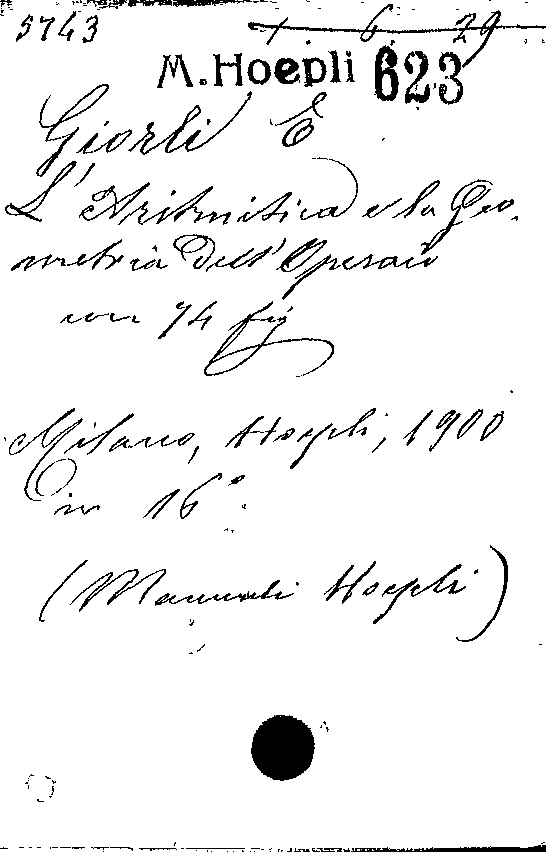 5743 1. 6. 29
M. Hoepli 623
Giorli E
L'Aritmitica e la Geo.
metria Dell'Operaio
con 74 fig
Milano, Hoepli, 1900
in 16°.
(Manuali Hoepli)